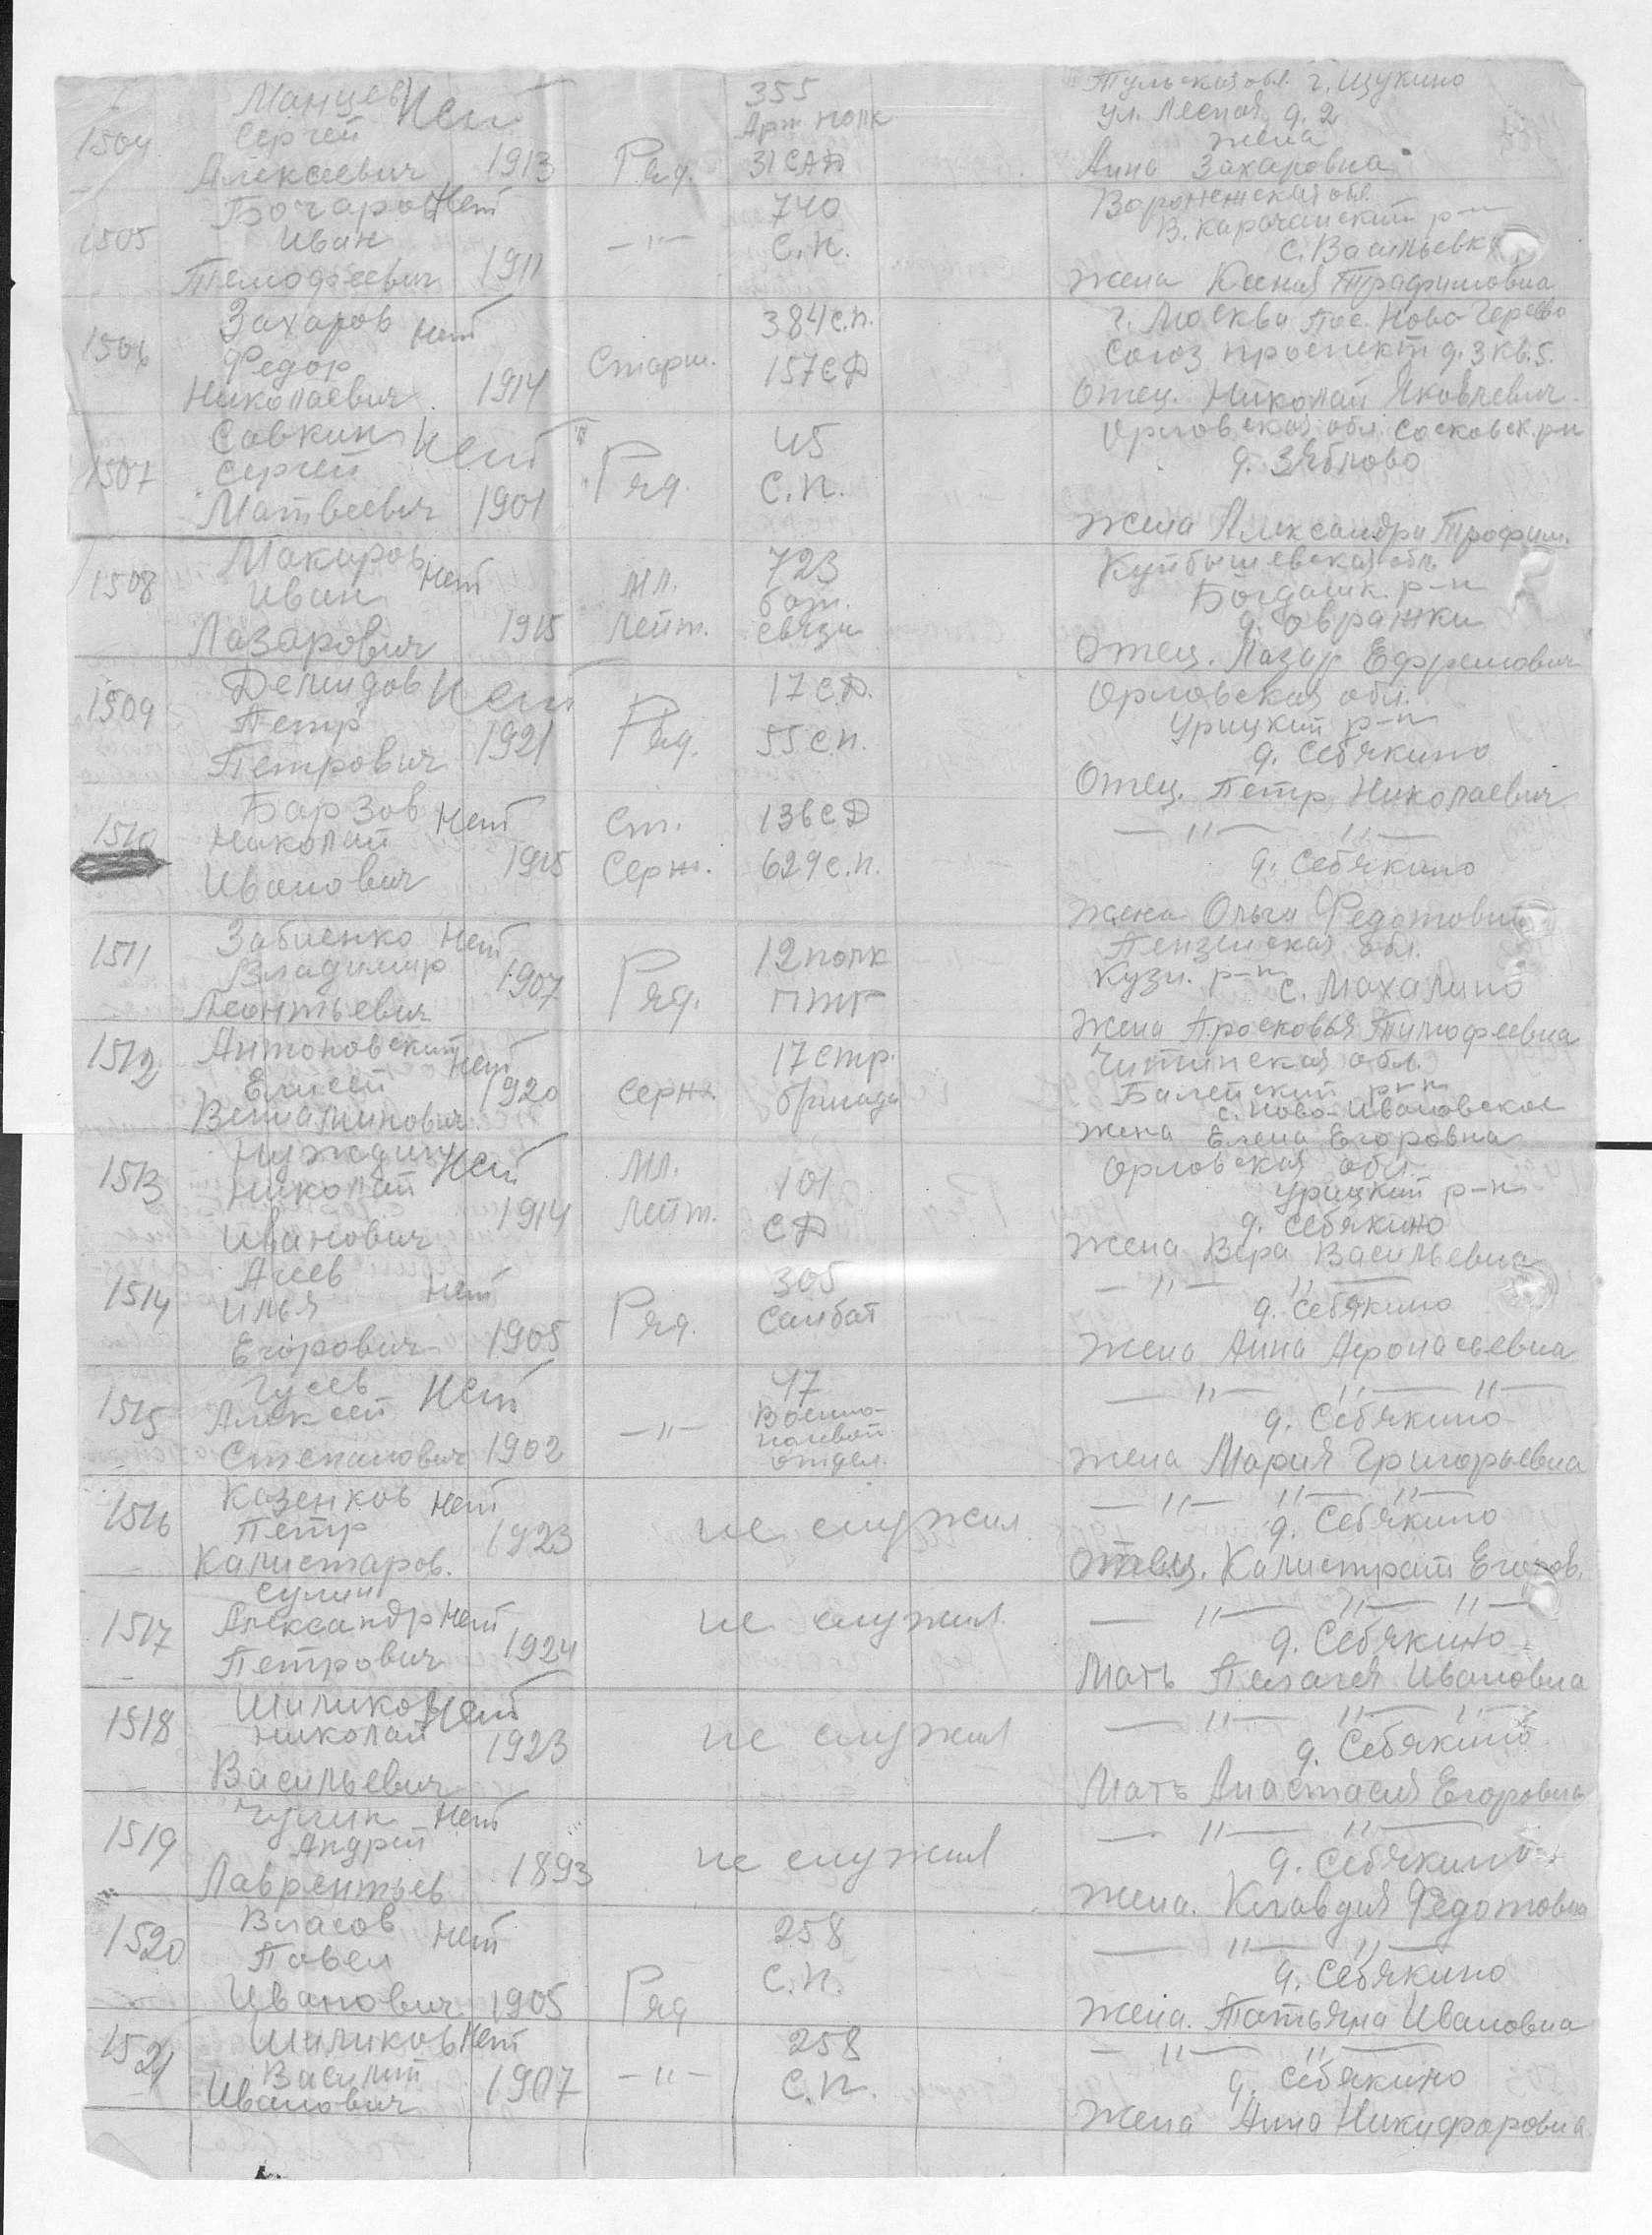 1504 Манцев Нет
Сергей
Алексеевич 1913 Ряд. 355
Арт полк
31 САД Тульская обл. г. Щукино
ул. Лесная д. 2
жена
Анна Захаровна
1505 Бочаров Нет
Иван
Темофеевич 1911 —"— 740
С.п. Воронежская обл.
В. Карачанский р-н
с. Васильевка
Жена Ксения Трафимовна
1506 Захаров Нет
Федор
Николаевич 1914 Старш. 384 с.п.
157 СД г. Москва Пос. Ново
Союз проспект д. 3 кв. 5.
Отец. Николай Яковлевич
1507 Савкин Нет
Сергей
Матвеевич 1901 Ряд. 45
С.п. Орловская обл. Сосковск. р-н
д. Зяблово
Жена Александра Трофим.
1508 Макаров Нет
Иван
Лазарович 1915 Мл.
Лейт. 723
бат.
связи Куйбышевская обл.
р-н
д. Овражки
Отец. Лазар Ефремович
1509 Демидов Нет
Петр
Петрович 1921 Ряд. 17 С.Д.
55 с п. Орловская обл.
Урицкий р-н
д. Себякино
Отец. Петр Николаевич
1510 Барзов Нет
Николай
Иванович 1915 Ст.
Серж. 136 СД
629 с.п. —"— "—
д. Себякино
Жена Ольга Федотовна
1511 Забиенко Нет
Владимир
Леонтьевич 1907 Ряд. 12 полк
Пензенская обл.
Кузн. р-н с. Махалино
Жена Просковья Тимофеевна
1512 Антоновский Нет
Елисей
Вениаминович 1920 Серж. 17 стр.
бригада Читинская обл.
Балейский р-н
с. Ново-Ивановское
жена Елена Егоровна
1513 Нуждин Нет
Николай
Иванович 1914 Мл.
Лейт. 101
СД Орловская обл.
Урицкий р-н
д. Себякино
Жена Вера Васильевна
1514 Агеев Нет
Илья
Егорович 1905 Ряд. 305
Санбат —"— "—
д. Себякино
Жена Анна Афонасьевна
1515 Гусев Нет
Алексей
Степанович 1902 —"— 47
Военно-
полевой
отдел. —"— "— "—
д. Себякино
Жена Мария Григорьевна
1516 Казенков Нет
Петр
Калистаров. 1923 не служил —"— "— "—
д. Себякино
Отец. Калистрат Егоров.
1517 Сулин
Александр Нет
Петрович 1924 не служил —"— "— "—
д. Себякино
Мать Пелагея Ивановна
1518 Шиликов Нет
Николай
Васильевич 1923 не служил —"— "— "—
д. Себякино
Мать Анастасия Егоровна
1519 Нет
Андрей
Лаврентьев 1893 не служил —"— "—
д. Себякино
Жена. Клавдия Федотовна
1520 Власов Нет
Павел
Иванович 1905 Ряд 258
С.п. —"— "—
д. Себякино
Жена. Татьяна Ивановна
1521 Шиликов Нет
Василий
Иванович 1907 —"— 258
С.п. —"— "—
д. Себякино
Жена Анна Никифоровна